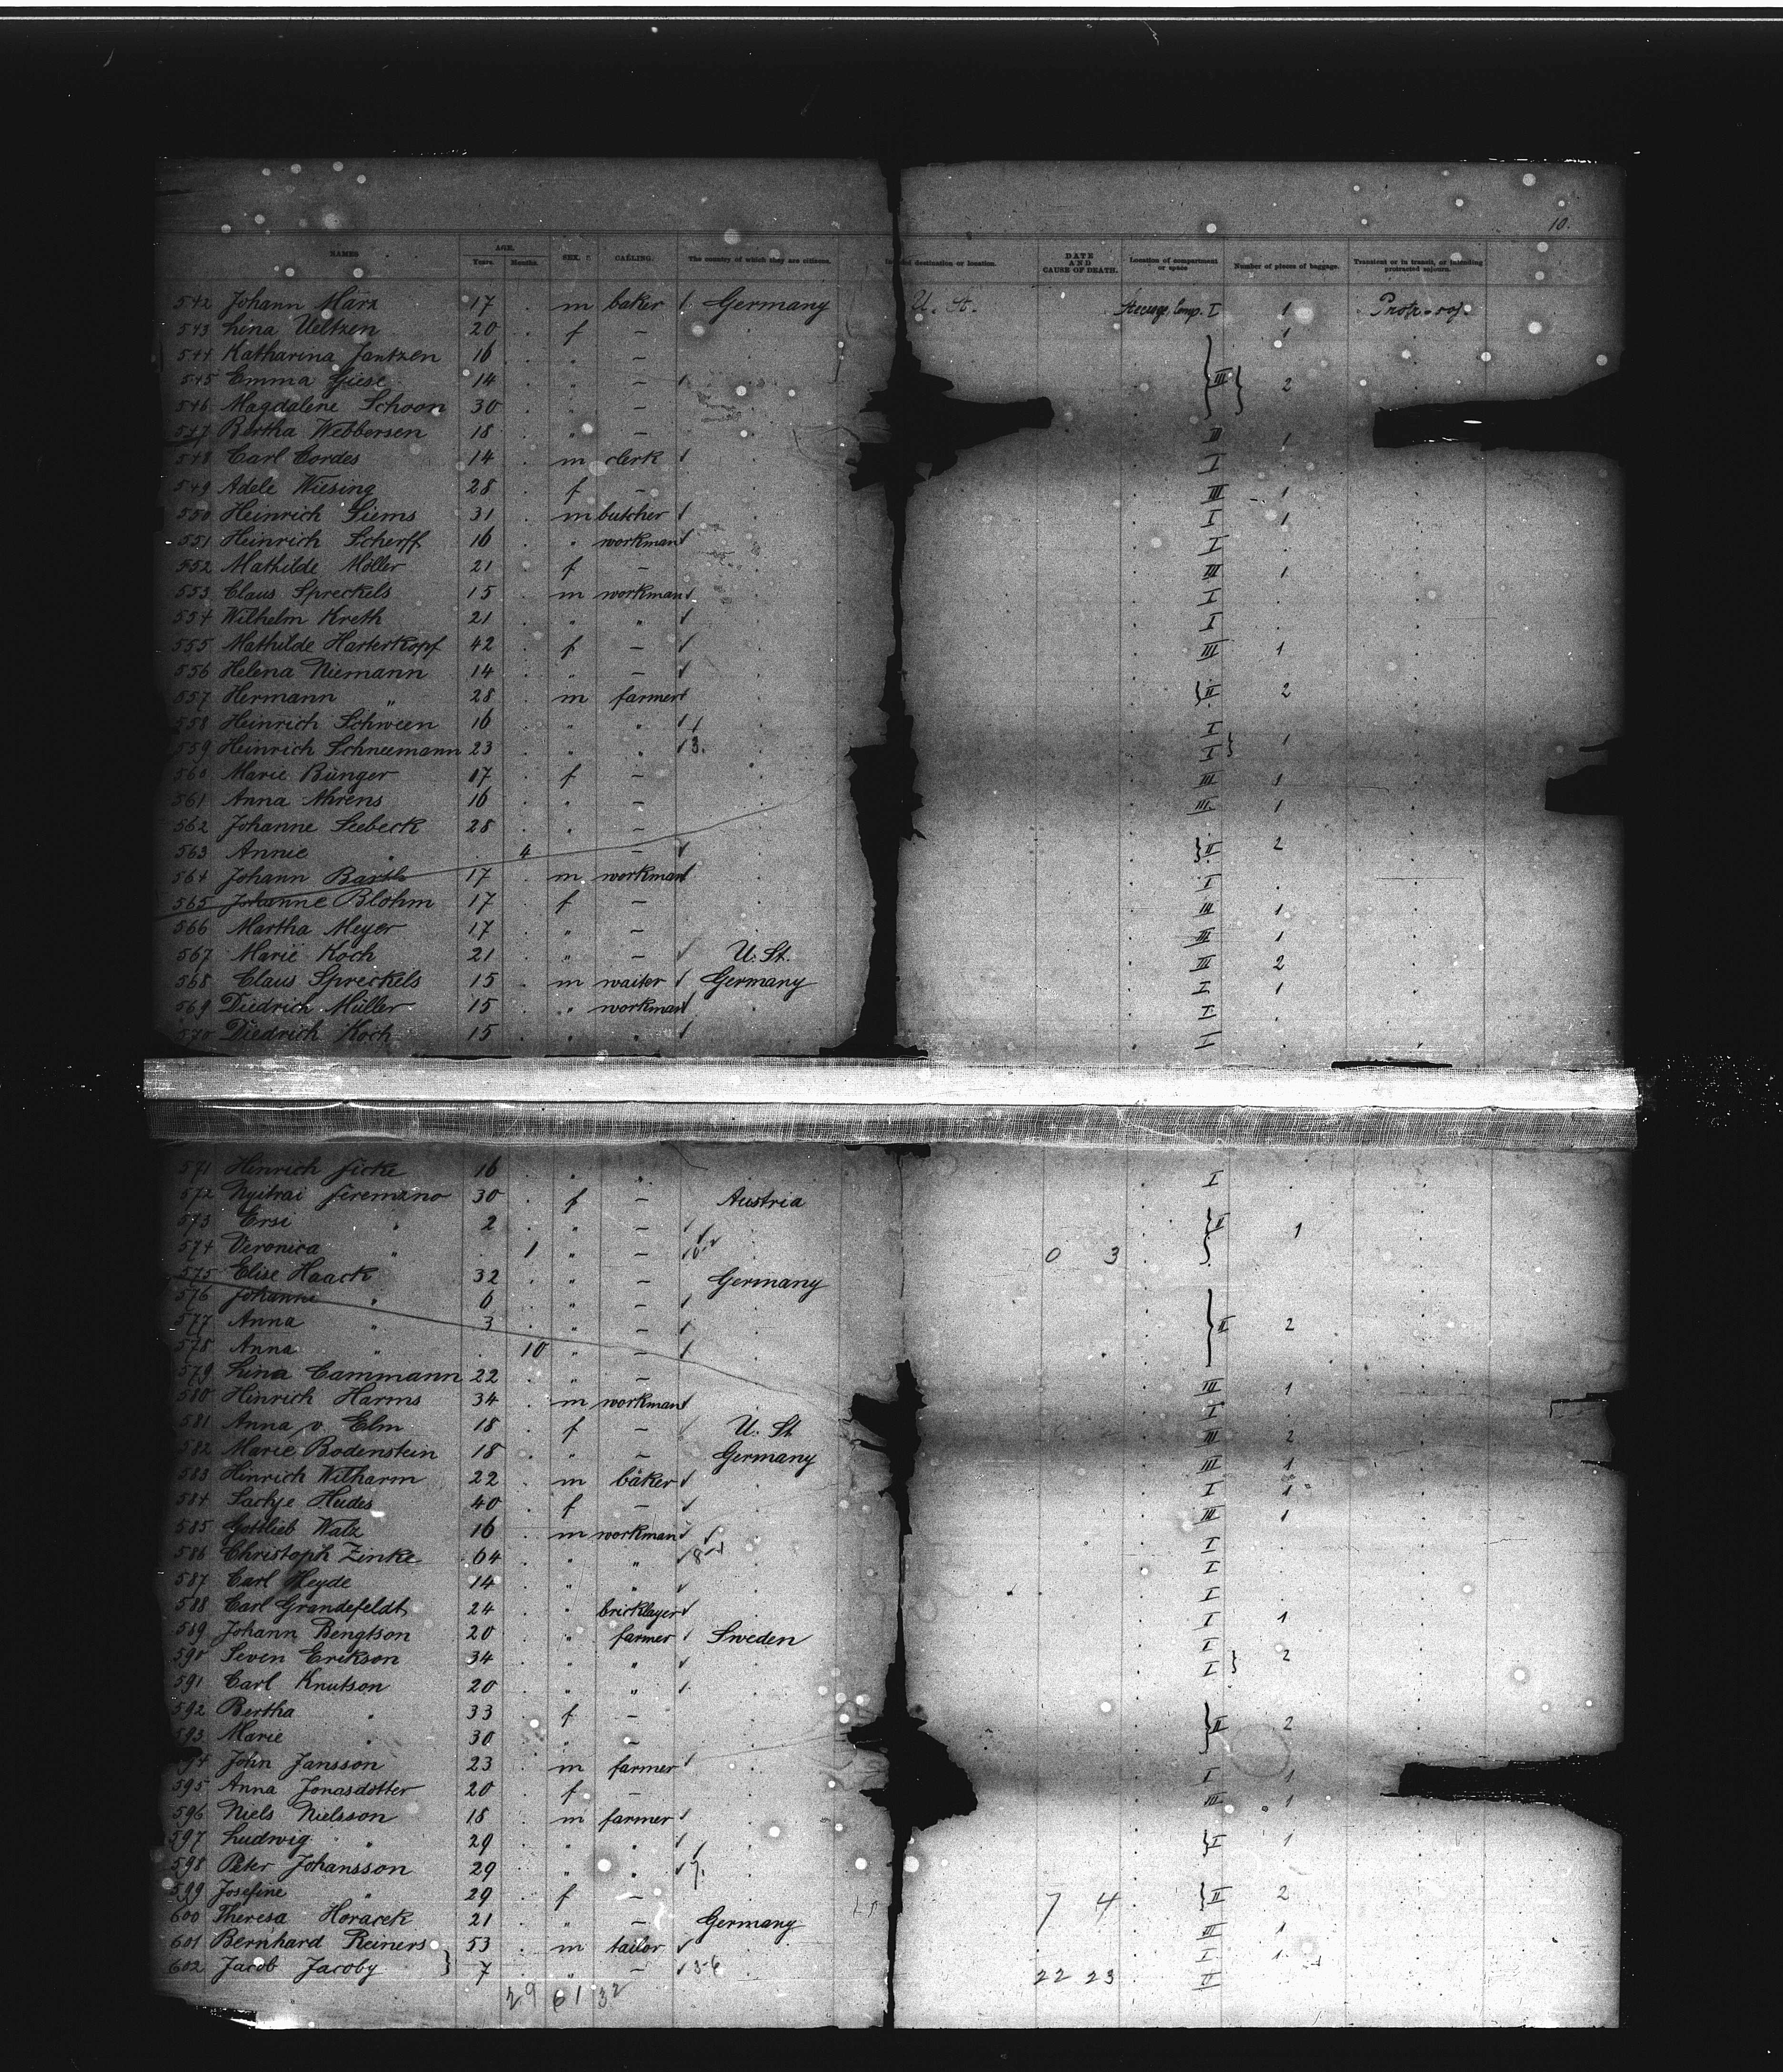 10.
NAMES AGE. Years. Months. SEX. CALLING. The country of which they are citizens. destination or location. DATE AND CAUSE OF DEATH. Location of compartment or space Number of pieces of baggage. Transient or in transit, or intending protracted sojourn.
542 Johann März 17 . m baker Germany U. St. Steerage Comp. I 1
543 Lina Ueltzen 20 . f 1
544 Katharina Jantzen 16 . " –
545 Emma Giese 14 . " – III 2
546 Magdalene Schoon 30 . " –
547 Bertha Webbersen 18 . " – III 1
548 Carl Cordes 14 . m clerk I
549 Adele Wiesing 28 . f – III 1
550 Heinrich Siems 31 . m butcher I 1
551 Heinrich Scherff 16 . " workman I
552 Mathilde Möller 21 . f – III 1
553 Claus Spreckels 15 . m workman I
554 Wilhelm Kreth 21 . " " I
555 Mathilde Harterkopf 42 . f – III 1
556 Helena Niemann 14 . " –
557 Hermann " 28 . m farmer II 2
558 Heinrich Schween 16 . " " I
559 Heinrich Schneemann 23 . " " 3. I 1
560 Marie Bünger 17 . f – III 1
561 Anna Ahrens 16 . " – III 1
562 Johanne Seebeck 28 . " –
563 Annie " . 4 – II 2
564 Johann 17 . m workman I
565 Johanne Blohm 17 . f – III 1
566 Martha Meyer 17 . " – III 1
567 Marie Koch 21 . " – U. St. III 2
568 Claus Spreckels 15 . m waiter Germany I 1
569 Diedrich Müller 15 . " workman I
570 Diedrich Koch 15 . " " I
571 Hinrich Ficke 16 . " " I
572 Nyitrai 30 . f – Austria
573 Ersi " 2 . " – II 1
574 Veronica " . 1 " – 0 3
575 Elise Haack 32 . " – Germany
576 Johanne " 6 . " –
577 Anna " 3 . " – II 2
578 Anna " . 10 " –
579 Lina Cammann 22 . " – III 1
580 Hinrich Harms 34 . m workman I
581 Anna v. Elm 18 . f – U. St. III 2
582 Marie Bodenstein 18 . " – Germany III 1
583 Hinrich Witharm 22 . m bäker I 1
584 Hudes 40 . f – III 1
585 Gottlieb Walz 16 . m workman I
586 Christoph Zinke 64 . " " 8 I
587 Carl Heyde 14 . " " I
588 Carl Grandefeldt 24 . " bricklayer I 1
589 Johann Bengtson 20 . " farmer Sweden I
590 Seven Erikson 34 . " " I 2
591 Carl Knutson 20 . " "
592 Bertha " 33 . f –
593 Marie " 30 . " – II 2
594 John Jansson 23 . m farmer I 1
595 Anna Jonasdotter 20 . f – III 1
596 Niels Nielsson 18 . m farmer
597 Ludwig " 29 . " " I 1
598 Peter Johansson 29 . " " 7.
599 Josefine " 29 . f – 7 4 II 2
600 Theresa Horacek 21 . " – Germany III 1
601 Bernhard Reiners 53 . m tailor I 1
602 Jacob Jacoby 7 . " – 5-6 22 23 II
29 61 32